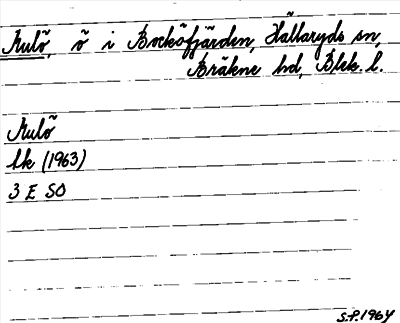 Mulö, ö i Bocköfjärden, Hällaryds sn,
Bräkne hd, Blek. l.
Mulö
Ek (1963)
3 E SO
S.P. 1964